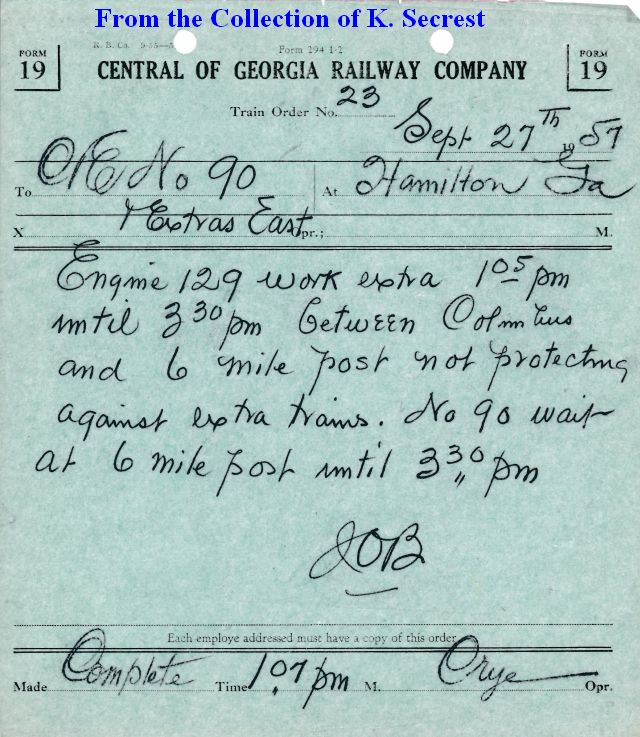 From the Collection of K. Secrest
R. B. Co. 9-55—5
Form 294 1-2
FORM 19
CENTRAL OF GEORGIA RAILWAY COMPANY
FORM 19
Train Order No. 23
Sept 27th 1957
To C&E No 90 At Hamilton Ga
X & Extras East Opr.; M.
Engine 129 work extra 1 05 pm
until 3 30 pm between Columbus
and 6 mile post not protecting
against extra trains. No 90 wait
at 6 mile post until 3 30 pm
JOB
Each employe addressed must have a copy of this order.
Made Complete Time 1 07 pm M. Crye Opr.